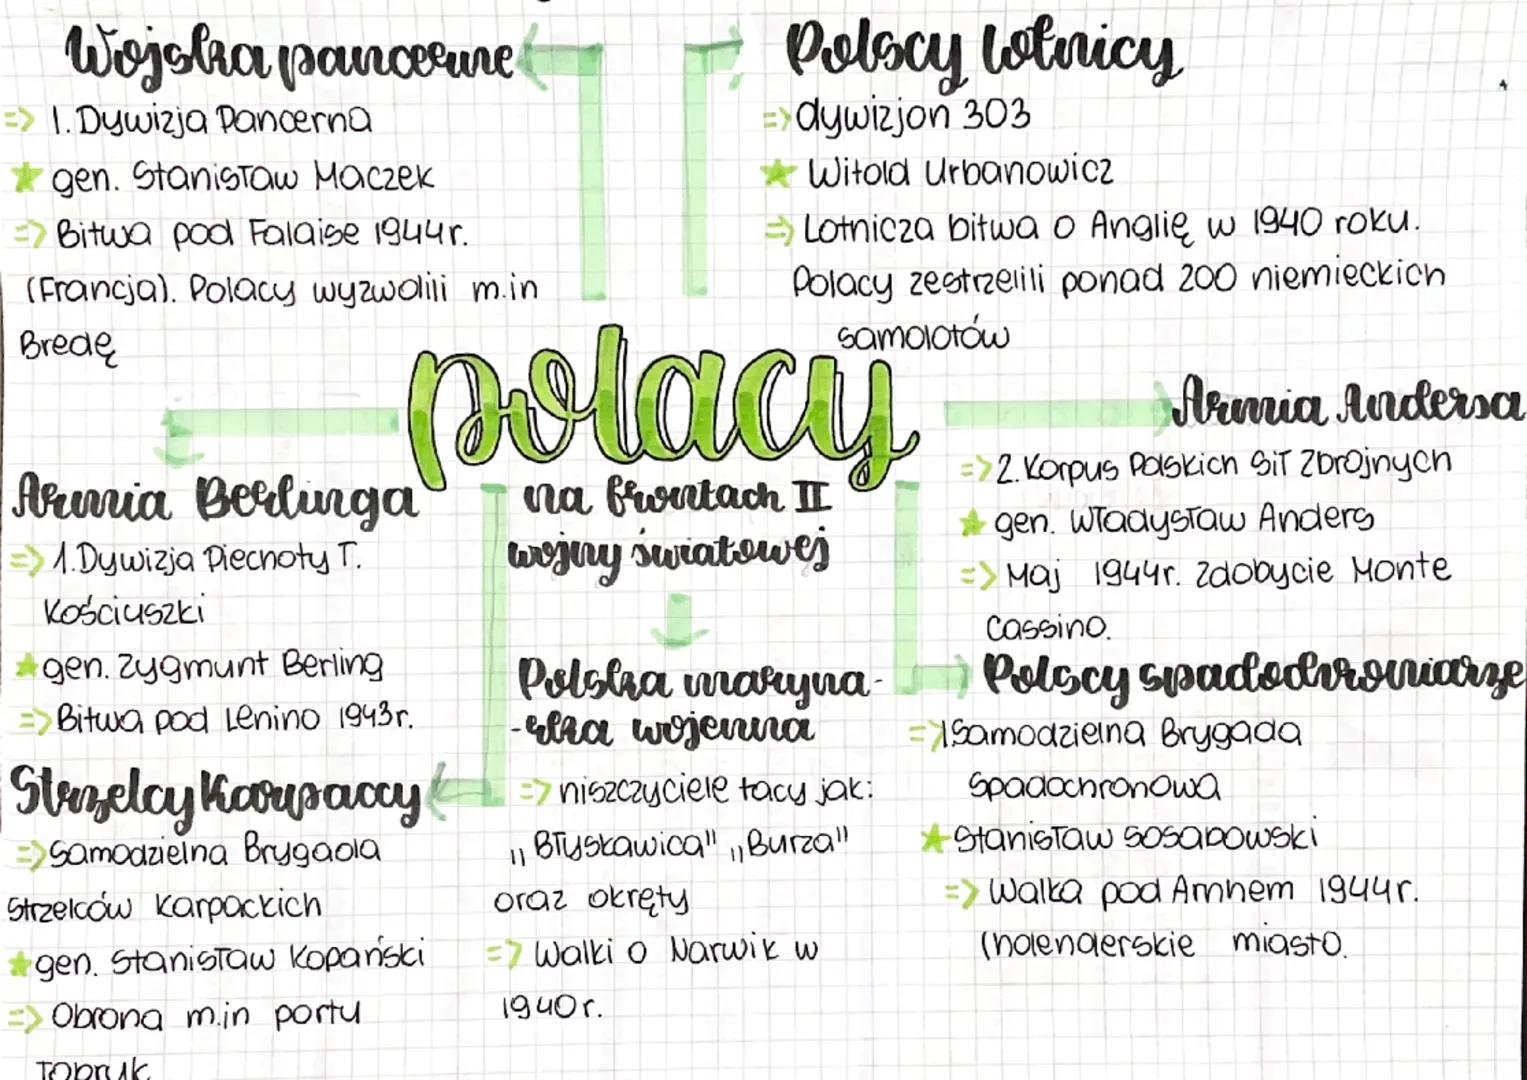 Wojska pancerne
=> 1. Dywizja Pancerna
gen. Stanisław Maczek
=> Bitwa pod Falaise 1944r.
(Francja). Polacy wyzwolili m.in
Bredę
Polscy lotnicy
=> dywizjon 303
Witold Urbanowicz
=> Lotnicza bitwa o Anglię w 1940 roku.
Polacy zestrzelili ponad 200 niemieckich
samolotów
polacy
na frontach II
wojny światowej
Armia Andersa
=> 2. Korpus Polskich Sił Zbrojnych
gen. Władysław Anders
=> Maj 1944r. zdobycie Monte
Cassino.
Armia Berlinga
=> 1. Dywizja Piechoty T.
Kościuszki
gen. Zygmunt Berling
=> Bitwa pod Lenino 1943r.
Polska maryna-
-rka wojenna
=> niszczyciele tacy jak:
„Błyskawica" „Burza"
oraz okręty
=> Walki o Narwik w
1940r.
Polscy spadochroniarze
=> 1 Samodzielna Brygada
Spadochronowa
Stanisław Sosabowski
=> Walka pod Arnhem 1944r.
(holenderskie miasto.
Strzelcy Karpaccy
=> Samodzielna Brygada
Strzelców Karpackich
gen. Stanisław Kopański
=> Obrona m.in portu
Tobruk